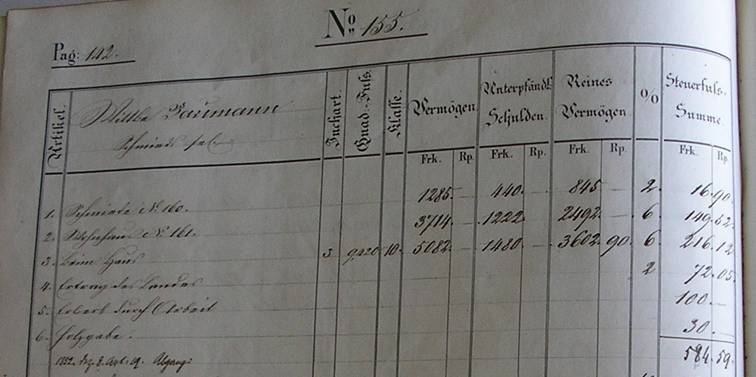 No. 155.
Pag: 142.
Artikel. Wittwe Baumann Juchart. Quad. Fuss. Klasse. Vermögen. Unterpfändl. Schulden. Reines Vermögen. % Steuerfuss-Summe.
Schmieds sel.
Frk. Rp. Frk. Rp. Frk. Rp. Frk. Rp.
1. Schmiede No 160. 1285. — 440. — 845 — 2 16. 90.
2. Wohnhaus No 161. 3714. — 1222. — 2492. — 6. 149. 52.
3. Beim Haus 3. 9420. 10. 5082. — 1480. — 3602. 90. 6 216. 12
4. Ertrag des Landes 2 72. 05.
5. Erwerb durch Arbeit 100. —
6. Holzgabe. 30.
1852. Dez. 8. Art. Abgang: 584. 59.